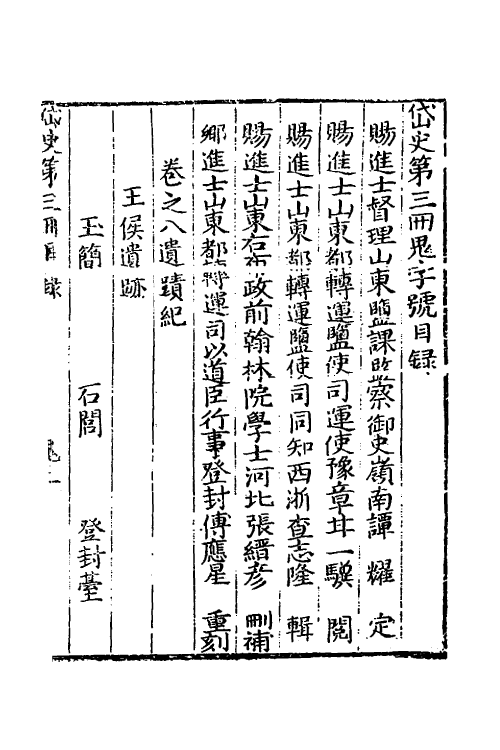 岱史第三冊鬼字號目録
賜進士督理山東鹽課監察御史嶺南譚 耀 定
賜進士山東都轉運鹽使司運使豫章甘一驥 閱
賜進士山東都轉運鹽使司同知西浙查志隆 輯
賜進士山東右布政前翰林院學士河北張縉彦 刪補
鄉進士山東都轉運司以道臣行事登封傅應星 重刻
卷之八遺蹟紀
王侯遺跡
玉簡 石閭 登封臺
岱史第三冊目録 鬼一